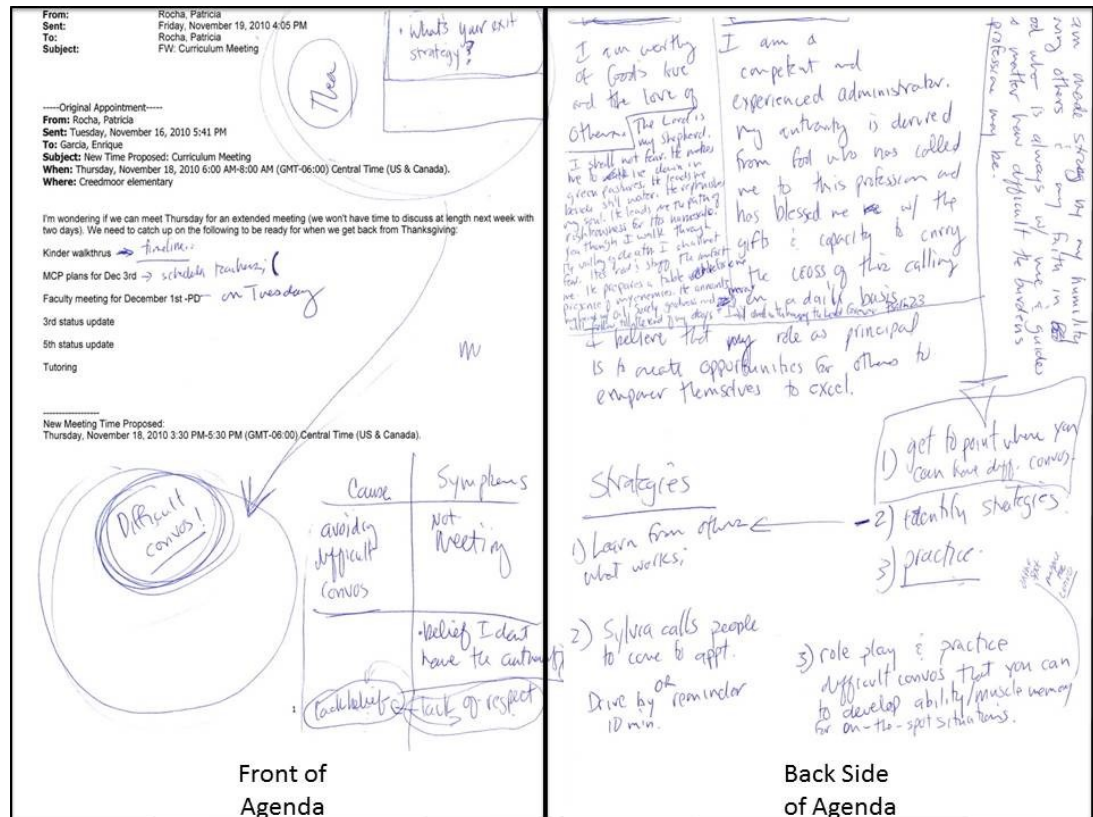 From: Rocha, Patricia
Sent: Friday, November 19, 2010 4:05 PM
To: Rocha, Patricia
Subject: FW: Curriculum Meeting
• What's your exit
strategy?
-----Original Appointment-----
From: Rocha, Patricia
Sent: Tuesday, November 16, 2010 5:41 PM
To: Garcia, Enrique
Subject: New Time Proposed: Curriculum Meeting
When: Thursday, November 18, 2010 6:00 AM-8:00 AM (GMT-06:00) Central Time (US & Canada).
Where: Creedmoor elementary
I'm wondering if we can meet Thursday for an extended meeting (we won't have time to discuss at length next week with
two days). We need to catch up on the following to be ready for when we get back from Thanksgiving:
Kinder walkthrus → timeline..
MCP plans for Dec 3rd → schedules teachers;
Faculty meeting for December 1st -PD on Tuesday
3rd status update
5th status update
Tutoring
-------------------
New Meeting Time Proposed:
Thursday, November 18, 2010 3:30 PM-5:30 PM (GMT-06:00) Central Time (US & Canada).
Difficult
convos!
Cause Symptoms
avoiding
difficult
convos
Not
Meeting
• belief I dont
have the authority
lack belief lack of respect
1
Front of
Agenda
I am worthy
of God's love
and the love of
others.
The Lord is
my shepherd.
I shall not fear. He makes
me to lie down in
green pastures. He leads me
beside still water. He replenishes
my soul. He leads me the path of
righteousness for His namesake.
I am a
competent and
experienced administrator.
my authority is derived
from God who has called
me to this profession and
has blessed me w/ the
gifts & capacity to carry
the cross of this calling
on a daily basis.
am made strong by my humility
my faith in
God who is always w/ me & guides
matter how difficult the burdens
profession may be.
I believe that my role as principal
is to create opportunities for others to
empower themselves to excel.
1) get to point where you
can have diff. convos.
2) identify strategies.
3) practice.
Strategies
1) Learn from others
what works;
2) Sylvia calls people
to come to appt.
OR
Drive by reminder
10 min.
3) role play & practice
difficult convos that you can
to develop ability/muscle memory
for on-the-spot situations.
Back Side
of Agenda